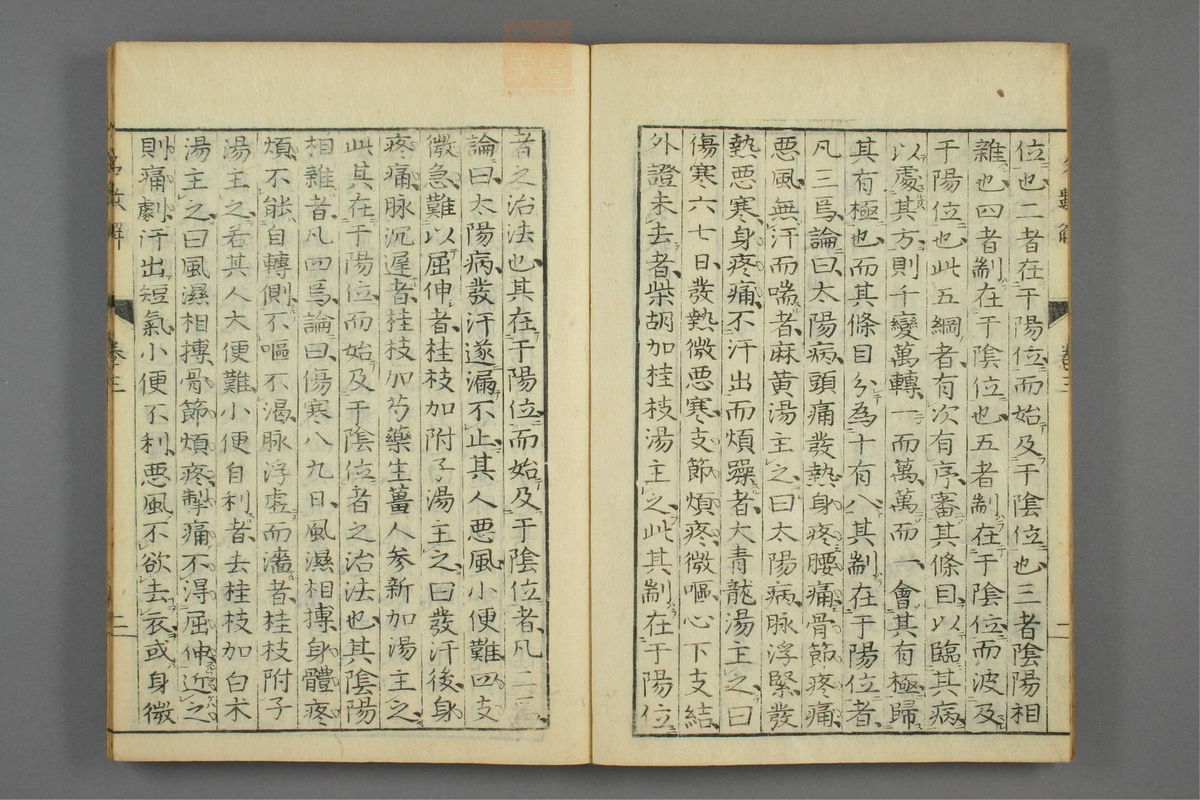 位也二者在于陽位而始及于陰位也三者陰陽相
雜也四者制在于陰位也五者制在于陰位而波及
于陽位也此五綱者有次有序審其條目以臨其病
以處其方則千變萬轉一而萬萬而一會其有極歸
其有極也而其條目分為十有八其制在于陽位者
凡三焉論曰太陽病頭痛發熱身疼腰痛骨節疼痛
惡風無汗而喘者麻黃湯主之曰太陽病脉浮緊發
熱惡寒身疼痛不汗出而煩躁者大青龍湯主之曰
傷寒六七日發熱微惡寒支節煩疼微嘔心下支結
外證未去者柴胡加桂枝湯主之此其制在于陽位
者之治法也其在于陽位而始及于陰位者凡二焉
論曰太陽病發汗遂漏不止其人惡風小便難四支
微急難以屈伸者桂枝加附子湯主之曰發汗後身
疼痛脉沉遲者桂枝加芍藥生薑人参新加湯主之
此其在于陽位而始及于陰位者之治法也其陰陽
相雜者凡四焉論曰傷寒八九日風濕相搏身體疼
煩不能自轉側不嘔不渴脉浮虛而濇者桂枝附子
湯主之若其人大便難小便自利者去桂枝加白朮
湯主之曰風濕相搏骨節煩疼掣痛不得屈伸近之
則痛劇汗出短氣小便不利惡風不欲去衣或身微
卷三
二